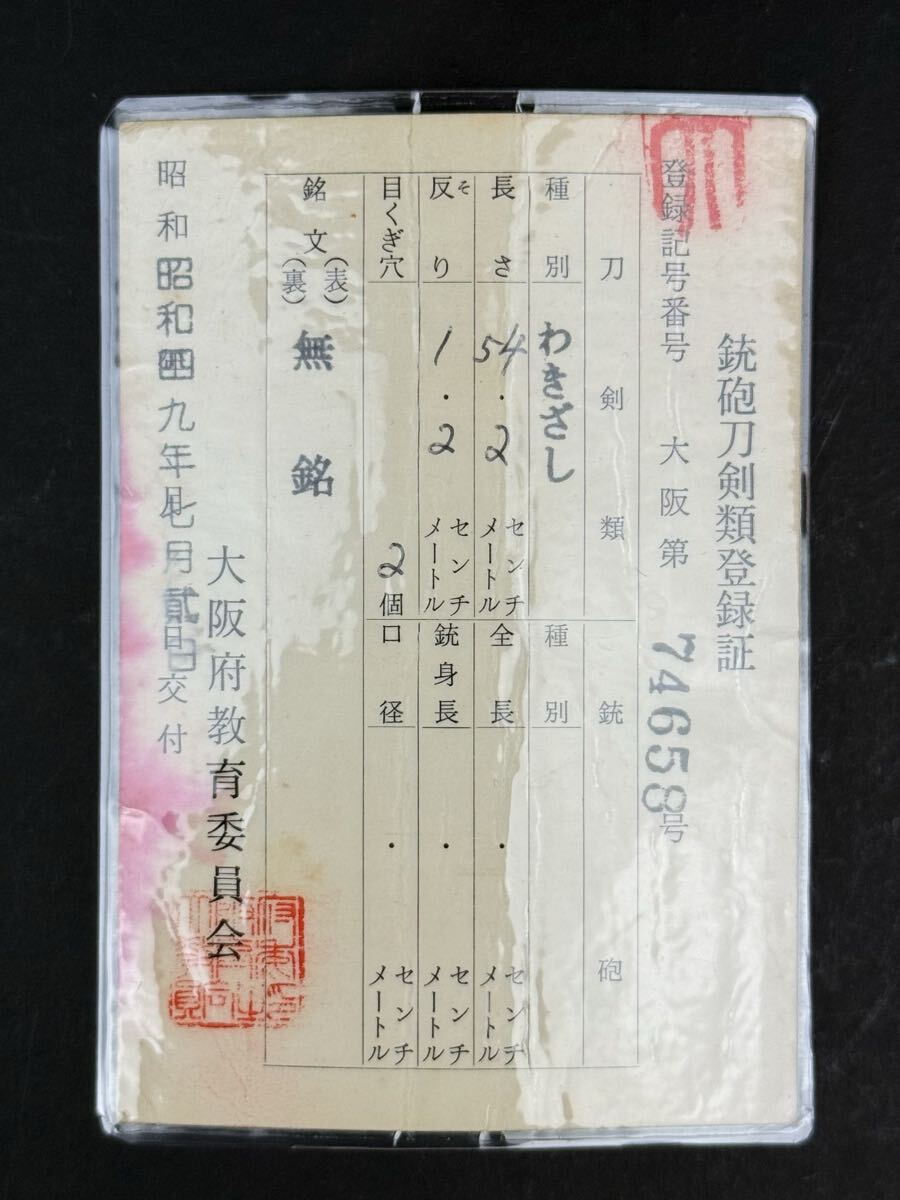 銃砲刀剣類登録証
登録記号番号 大阪第 74658号
刀剣類
種別 わきざし
長さ 54.2 センチメートル
反り そ 1.2 センチメートル
目くぎ穴 2個
銘文 (表) (裏) 無銘
銃砲
種別
全長 ・ センチメートル
銃身長 ・ センチメートル
口径 ・ センチメートル
昭和 昭和四九年七月貳日 年月日交付
大阪府教育委員会